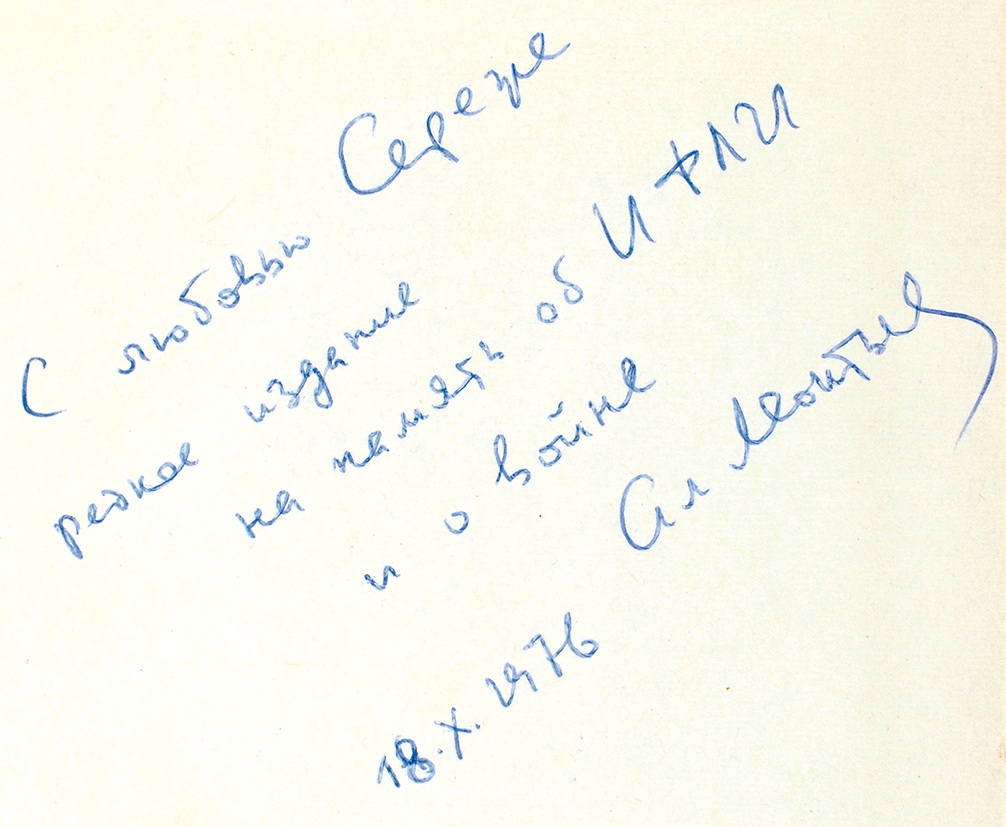 С любовью Сереже
редкое издание
на память об ИФЛИ
и о войне
Ал Леонтьев
18.X.1976